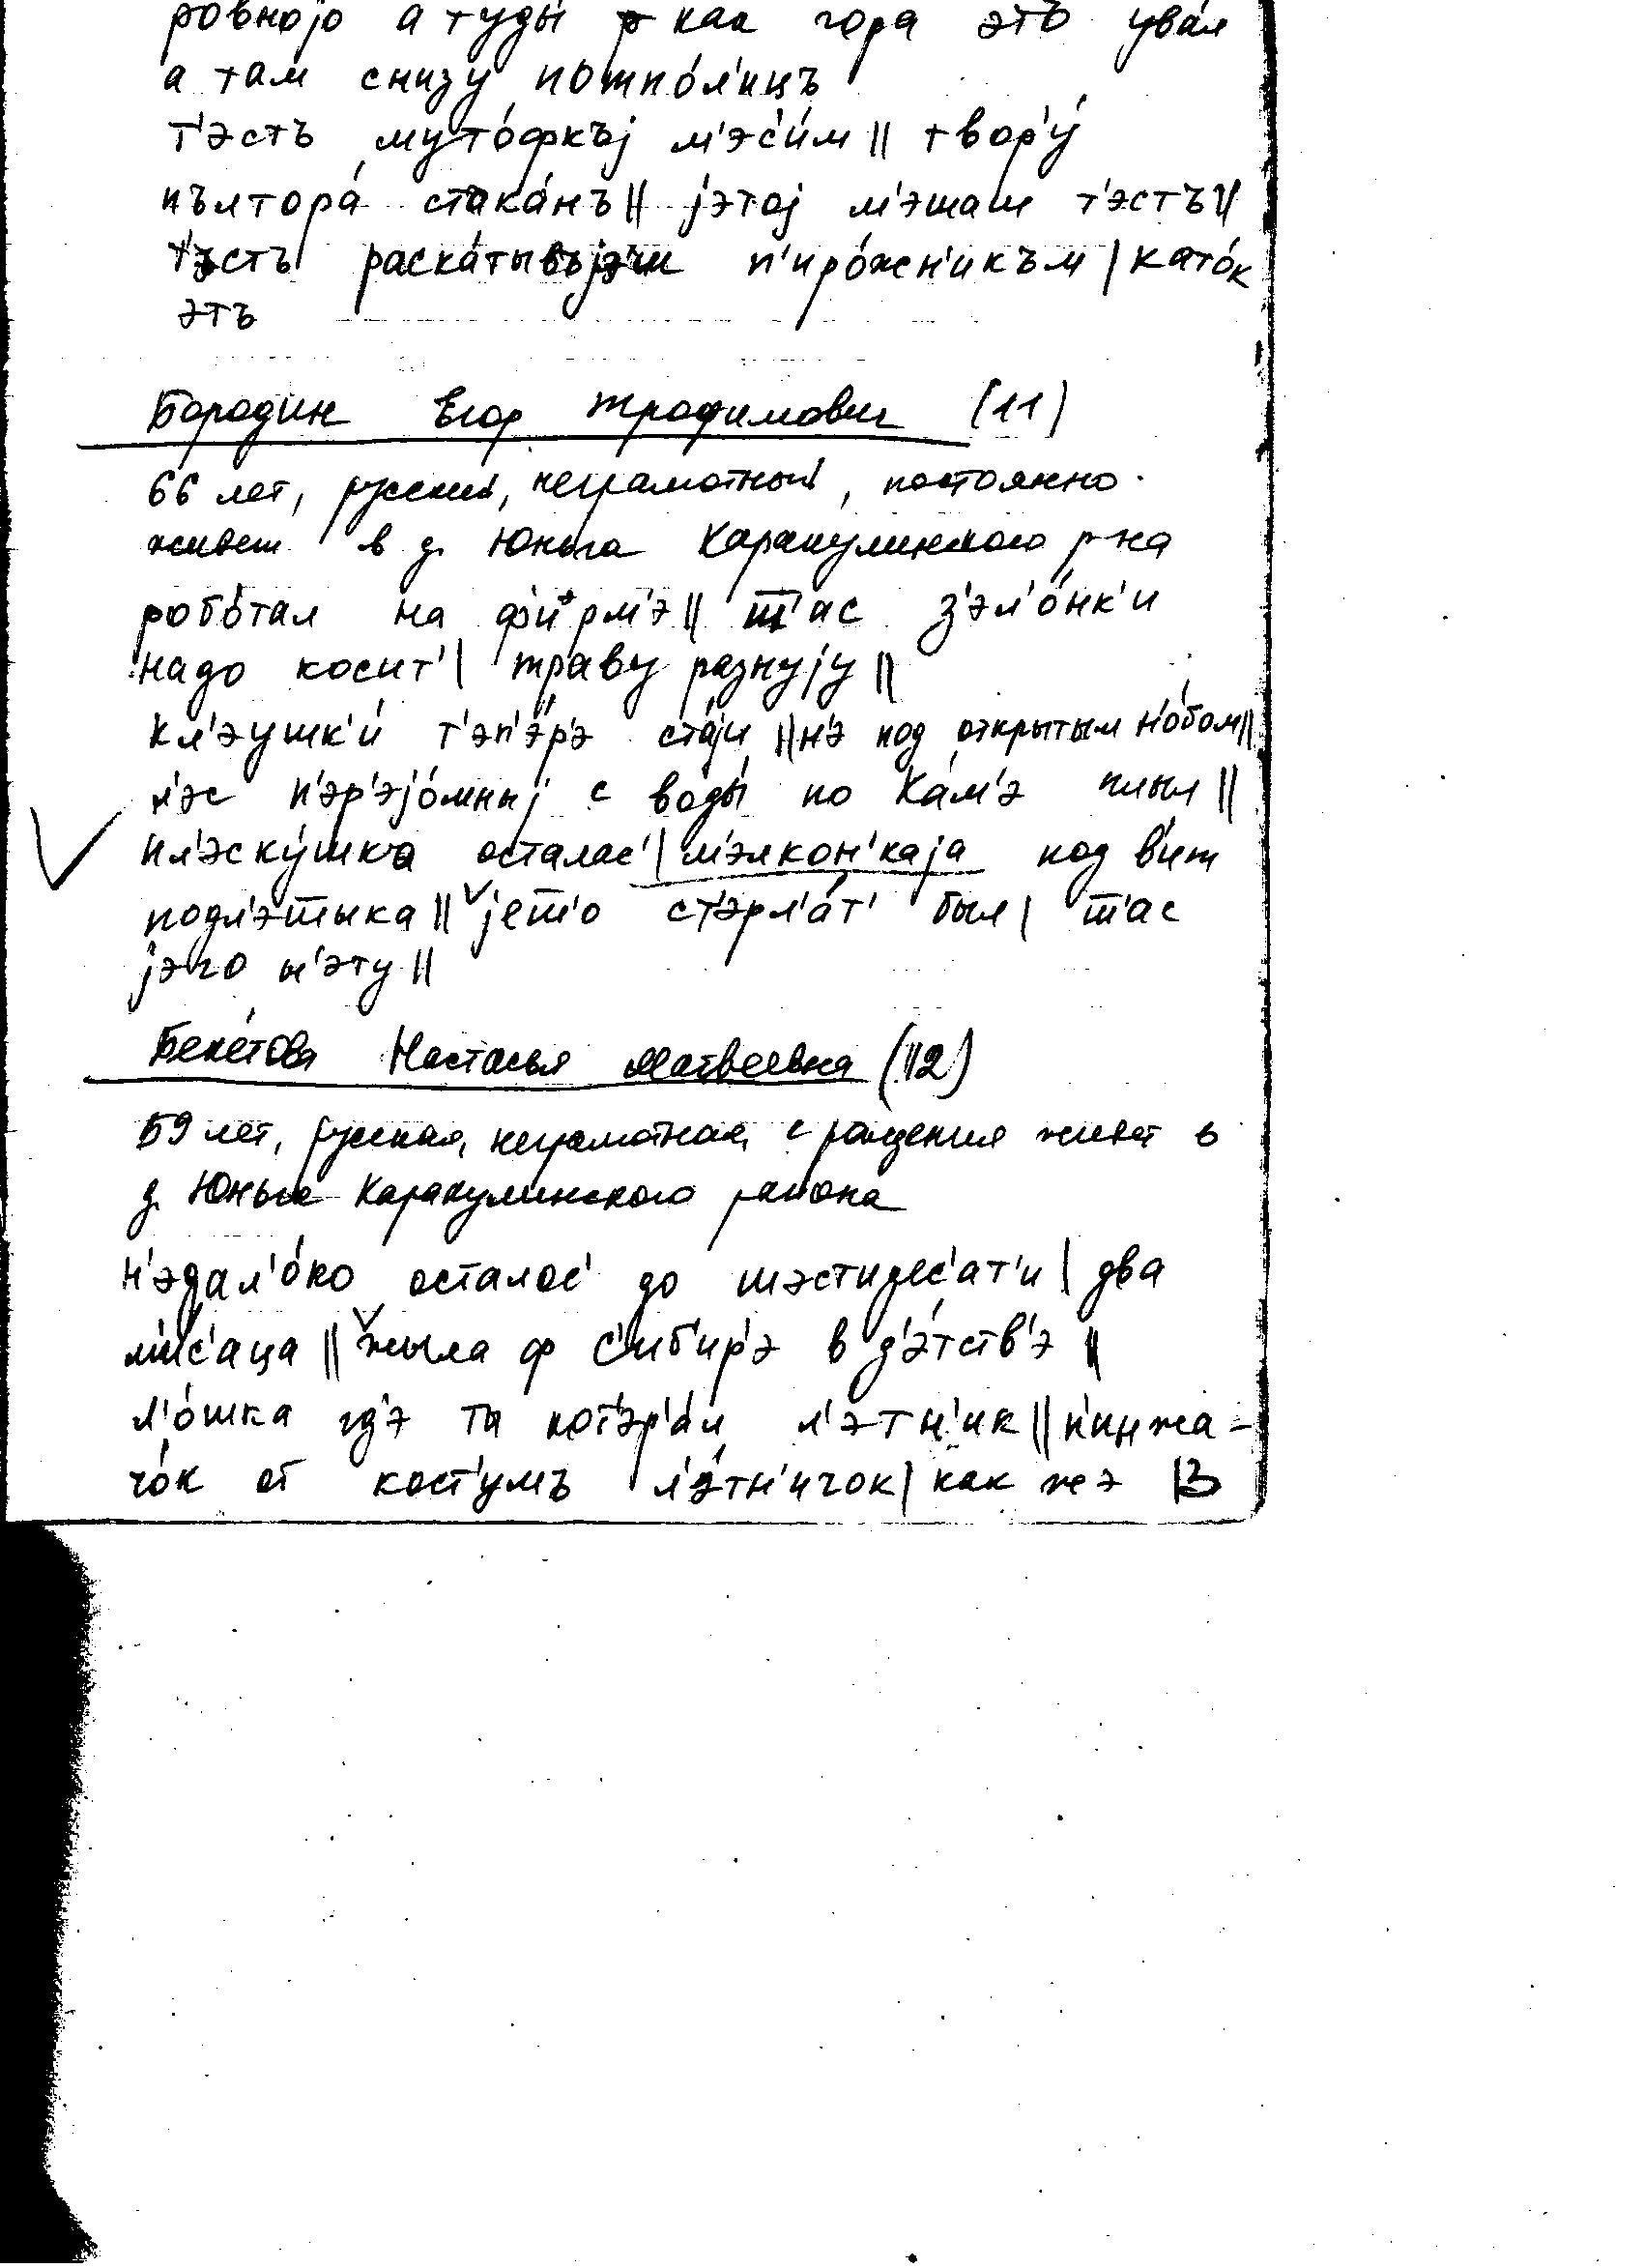 ровнојо а туды́ как гора этъ ува́л
а там снизу потпо́л'ицъ
т'эстъ муто́фкъј м'эс'и́м || твор'у́
пълтора́ стака́нъ || јэтој м'эшаш т'эстъ ||
т'эстъ раска́тывъјэш п'иро́жн'икъм | като́к
этъ
Бородин Егор Трофимович (11)
66 лет, русский, неграмотный, постоянно
живет в д. Юньга Каракулинского р-на
робо́тал на фи́рм'э || ш'ас з'эл'о́нк'и
надо косит' | траву разнују ||
кл'эушк'и́ т'эп'э́р'э стаји || н'э под открытым н'о́бом ||
л'эс п'эр'эјо́мныј с воды́ по Ка́м'э плыл ||
пл'эску́шка осталас' | м'элкон'каја под в'ит
подл'эшыка || јешо ст'эрл'а́т' был | ш'ас
јэго н'эту ||
Беке́това Настасья Матвеевна (12)
59 лет, русская, неграмотная, с рождения живет в
д. Юньга Каракулинского района
н'эдал'о́ко осталос' до шэстидес'ат'и | два
м'ис'аца || жыла ф с'иб'ир'э в д'э́тств'э ||
л'о́шка гд'э та пот'эр'а́л л'этн'ик || п'инжа-
чо́к от кост'умъ л'э́тн'ичок | как жэ В